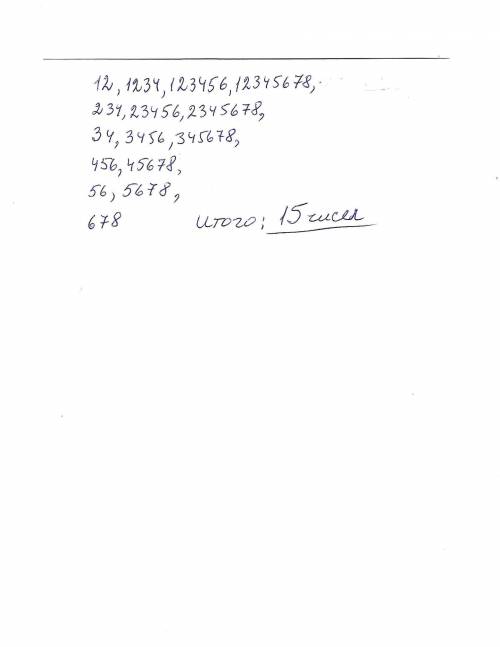 12, 1234, 123456, 12345678,
234, 23456, 2345678,
34, 3456, 345678,
456, 45678,
56, 5678,
678 итого: 15 чисел